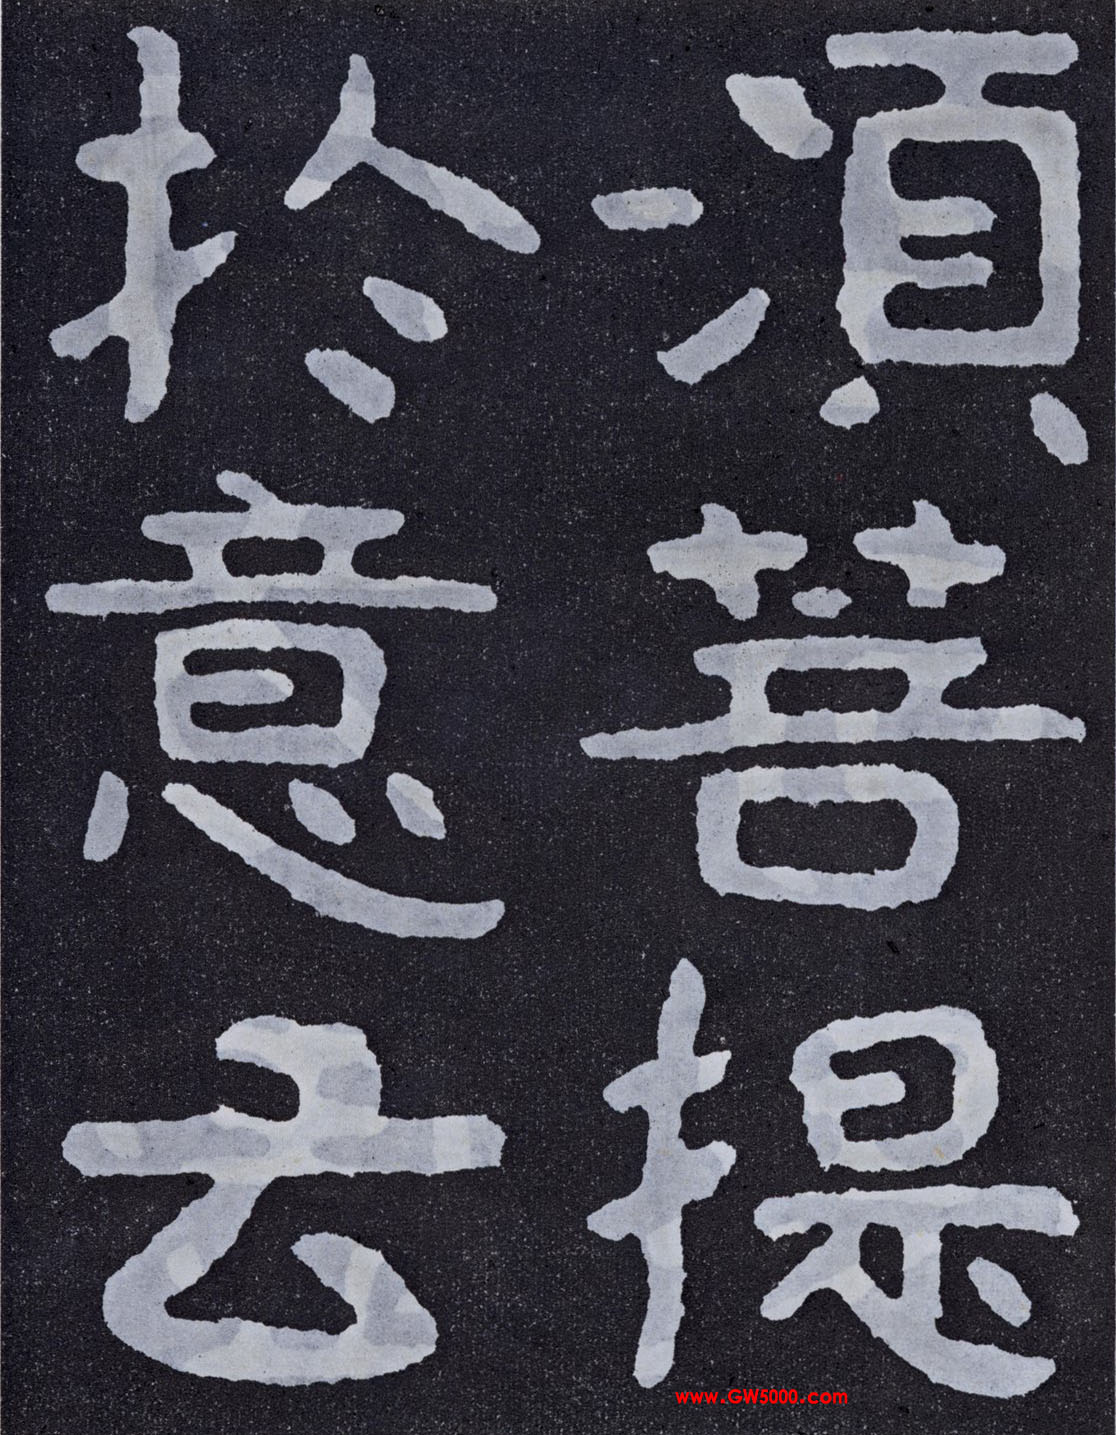 湏菩提
於意云
www.GW5000.com